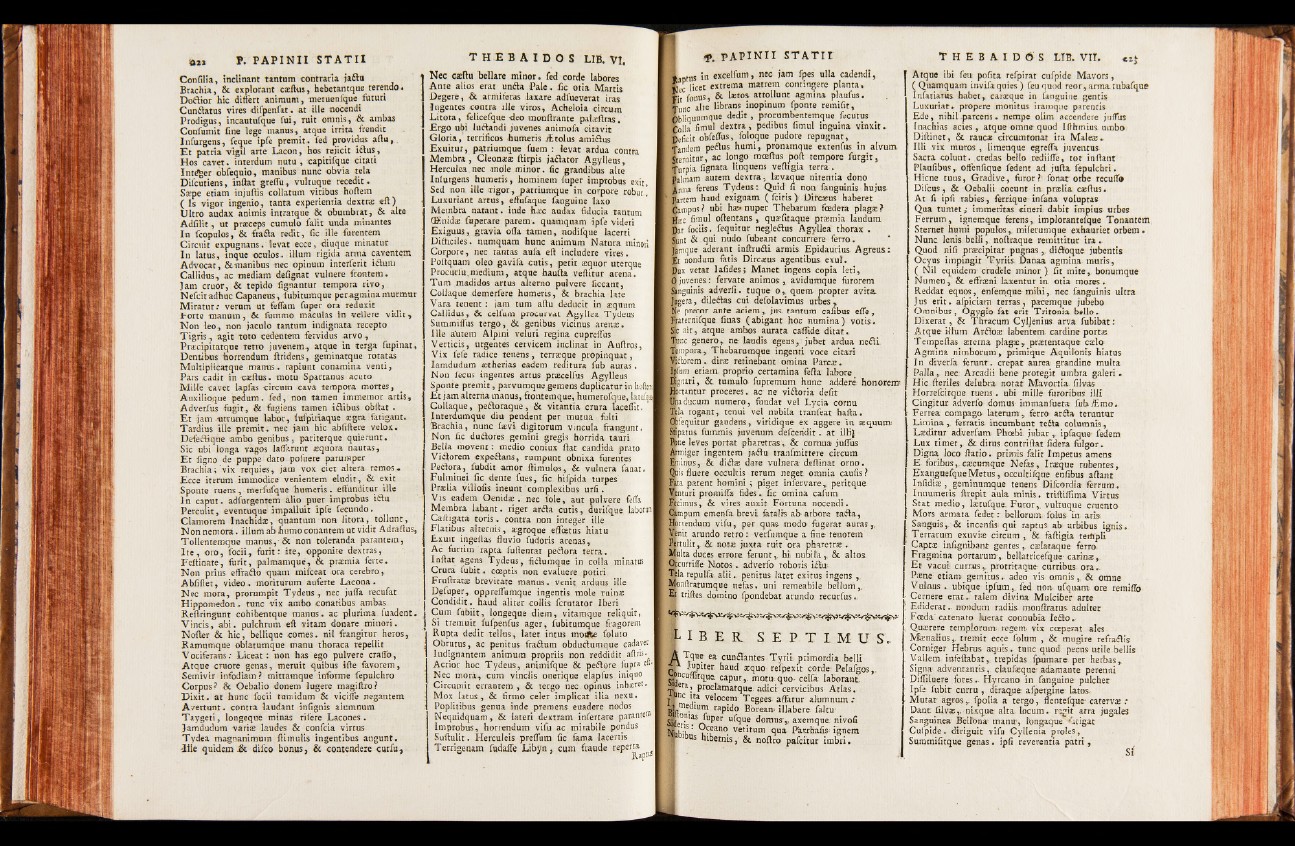 222 P. PAPINII STATII
Conſilia, inclinant tantum contraria jactu
Brachia, & explorant cæſtus, hebetantque terendo.
Doctior hic differt animum, metuenſque futuri
Cunctatus vires diſpenſat. at ille nocendi
Prodigus, incautuſque ſui, ruit omnis, & ambas
Conſumit ſine lege manus, atque irrita frendit
Inſurgens, ſeque ipſe premit. ſed providus aſtu,
Et patria vigil arte Lacon, hos rejicit ictus,
Hos cavet. interdum nutu, capitiſque citati
Integer obſequio, manibus nunc obvia tela
Diſcutiens, inſtat greſſu, vultuque recedit.
Sæpe etiam injuſtis collatum viribus hoſtem
( Is vigor ingenio, tanta experientia dextræ eſt)
Ultro audax animis intratque & obumbrat, & alte
Adſilit, ut præceps cumulo ſalit unda minantes
In ſcopulos, & fracta redit, ſic ille furentem
Circuit expugnans. levat ecce, diuque minatur
In latus, inque oculos. illum rigida arma caventem
Advocat, & manibus nec opinum interſerit ictum
Callidus, ac mediam deſignat vulnere frontem.
Jam cruor, & tepido ſignantur tempora rivo,
Neſcit adhuc Capaneus, ſubitumque per agmina murmur
Miratur: verum ut feſſam ſuper ora reduxit
Forte manum, & ſummo maculas in vellere vidit,
Non leo, non jaculo tantum indignata recepto
Tigris, agit toto cedentem fervidus arvo,
Præcipitatque retro juvenem, atque in terga ſupinat,
Dentibus horrendum ſtridens, geminatque rotatas
Multiplicatque manus. rapiunt conamina venti,
Pars cadit in cæſtus. motu Spartanus acuto
Mille cavet lapſas circum cava tempora mortes,
Auxilioque pedum. ſed, non tamen immemor artis,
Adverſus fugit, & fugiens tamen ictibus obſtat.
Et jam utrumque labor, ſuſpiriaque ægra fatigant.
Tardius ille premit. nec jam hic abſiſtere velox.
Defectique ambo genibus, pariterque quierunt.
Sic ubi longa vagos laſſarunt æquora nautas,
Et ſigno de puppe dato poſuere parumper
Brachia; vix requies, jam vox ciet altera remos.
Ecce iterum immodice venientem eludit, & exit
Sponte ruens, merſuſque humeris. effunditur ille
In caput. adſurgentem alio puer improbus ictu
Perculit, eventuque impalluit ipſe ſecundo.
Clamorem Inachidæ, quantum non litora, tollunt,
Non nemora. illum ab humo conantem ut vidit Adraſtus,
Tollentemque manus, & non toleranda parantem,
Ite, oro, ſocii, furit: ite, opponite dextras,
Feſtinate, furit, palmamque, & præmia ferte.
Non prius effracto quam miſceat ora cerebro,
Abſiſtet, video. moriturum auferte Lacona.
Nec mora, prorumpit Tydeus, nec juſſa recuſat
Hippomedon. tunc vix ambo conatibus ambas
Reſtringunt cohibentque manus. ac plurima ſuadent.
Vincis, abi. pulchrum eſt vitam donare minori.
Noſter & hic, bellique comes. nil frangitur heros,
Ramumque oblatumque manu thoraca repellit
Vociferans: Liceat: non has ego pulvere craſſo,
Atque cruore genas, meruit quibus iſte favorem,
Semivir infodiam? mittamque informe ſepulchro
Corpus? & Oebalio donem lugere magiſtro?
Dixit. at hunc ſocii tumidum & viciſſe negantem
Avertunt. contra laudant inſignis alumnum
Taygeti, longeque minas riſere Lacones.
Jamdudum variæ laudes & conſcia virtus
Tydea magnanimum ſtimulis ingentibus angunt.
Ille quidem & diſco bonus, & contendere curſu,
THEBAIDOS LIB. VI.
Nec cæſtu bellare minor. ſed corde labores
Ante alios erat uncta Pale. ſic otia Martis
Degere, & armiferas laxare adſueverat iras
Ingentes contra ille viros, Acheloia circum
Litora, feliceſque deo monſtrante palæſtras.
Ergo ubi luctandi juvenes animoſa citavit
Gloria, terrificos humeris Ætolus amictus
Exuitur, patriumque ſuem: levat ardua contra
Membra, Cleonææ ſtirpis jactator Agylleus,
Herculea nec mole minor. ſic grandibus alte
Inſurgens humeris, hominem ſuper improbus exit,
Sed non ille rigor, patriumque in corpore robur.
Luxuriant artus, effuſaque ſanguine laxo
Membra natant. inde hæc audax fiducia tantum
Œnidæ ſuperare parem. quamquam ipſe videri
Exiguus, gravia oſſa tamen, nodiſque lacerti
Difficiles. numquam hunc animum Natura minori
Corpore, nec tantas auſa eſt includere vires.
Poſtquam oleo gaviſa cutis, petit æquor uterque
Procurſu medium, atque hauſta veſtitur arena.
Tum madidos artus alterno pulvere ſiccant,
Collaque demerſere humeris, & brachia late
Vara tenent: jam tum aſtu deducit in æquum
Callidus, & celſum procurvat Agyllea Tydeus
Summiſſus tergo, & genibus vicinus arenæ.
Ille autem Alpini veluti regina cupreſſus
Verticis, urgentes cervicem inclinat in Auſtros,
Vix ſeſe radice tenens, terræque propinquat,
Iamdudum ætherias eadem reditura ſub auras.
Non ſecus ingentes artus præcelſus Agylleus
Sponte premit, parvumque gemens duplicatur in hoſtem
Et jam alterna manus, frontemque, humeroſque, latuſque
Collaque, pectoraque, & vitantia crura laceſſit.
Interdumque diu pendent per mutua fulti
Brachia, nunc ſævi digitorum vincula frangunt.
Non ſic ductores gemini gregis horrida tauri
Bella movent: medio conjux ſtat candida prato
Victorem expectans, rumpunt obnixa furentes
Pectora, ſubdit amor ſtimulos, & vulnera ſanat.
Fulminei ſic dente ſues, ſic hiſpida turpes
Prælia villoſis ineunt complexibus urſi.
Vis eadem Oenidæ. nec ſole, aut pulvere feſſa
Membra labant. riget arcta cutis, duriſque laborum
Caſtigata toris. contra non integer ille
Flatibus alternis, ægroque effœtus hiatu
Exuit ingeſtas fluvio ſudoris arenas,
Ac furtim rapta ſuſtentat pectora terra.
Inſtat agens Tydeus, fictumque in colla minatus
Crura ſubit. cœptis non evaluere potiri
Fruſtratæ brevitate manus. venit arduus ille
Deſuper, oppreſſumque ingentis mole ruinæ
Condidit. haud aliter collis ſcrutator Iberi
Cum ſubiit, longeque diem, vitamque reliquit,
Si tremuit ſuſpenſus ager, ſubitumque fragorem
Rupta dedit tellus, later intus monte ſoluto
Obrutus, ac penitus fractum obductumque cadaver
Indignantem animum propriis non reddidit aſtris.
Acrior hoc Tydeus, animiſque & pectore ſupra eſt.
Nec mora, cum vinclis onerique elapſus iniquo
Circumit errantem, & tergo nec opinus inhæret.
Mox latus, & firmo celer implicat ilia nexu.
Poplitibus genua inde premens evadere nodos
Nequidquam, & lateri dextram inſertare parantem
Improbus, horrendum viſu ac mirabile pondus
Suſtulit. Herculeis preſſum ſic fama lacertis
Terrigenam ſudaſſe Libyn, cum fraude reperta
Raptus
P. PAPINII STATII
Raptus in excelſum, nec jam ſpes ulla cadendi,
Nec licet extrema matrem contingere planta.
Fit ſonus, & lætos attollunt agmina plauſus.
Tunc alte librans inopinum ſponte remiſit,
Obliquumque dedit, procumbentemque ſecutus
Colla ſimul dextra, pedibus ſimul inguina vinxit.
Deficit obſeſſus, ſoloque pudore repugnat,
Tandem pectus humi, pronamque extenſus in alvum
Sternitur, ac longo mœſtus poſt tempore ſurgit,
Turpia ſignata linquens veſtigia terra.
Palmam autem dextra, lævaque nitentia dono
Arma ferens Tydeus: Quid ſi non ſanguinis hujus
Partem haud exiguam ( ſcitis) Dircæus haberet
Campus? ubi hæ nuper Thebarum fœdera plagæ?
Hæc ſimul oſtentans, quæſitaque præmia laudum
Dat ſociis. ſequitur neglectus Agyllea thorax.
Sunt & qui nudo ſubeant concurrere ferro.
Jamque aderant inſtructi armis Epidaurius Agreus:
Et nondum fatis Dircæus agentibus exul.
Dux vetat Iaſides; Manet ingens copia leti,
O juvenes: ſervate animos, avidumque furorem
Sanguinis adverſi. tuque o, quem propter avita
Jugera, dilectas cui deſolavimus urbes,
Ne precor ante aciem, jus tantum caſibus eſſe,
Fraterniſque ſinas (abigant hoc numina) votis.
Sic ait, atque ambos aurata caſſide ditat.
Tunc genero, ne laudis egens, jubet ardua necti
Tempora, Thebarumque ingenti voce citari
Victorem. diræ retinebant omina Parcæ.
Ipſum etiam proprio certamina feſta labore
Dignari, & tumulo ſupremum hunc addere honorem
Hortantur proceres. ac ne victoria deſit
Una ducum numero, fundat vel Lycia cornu
Tela rogant, tenui vel nubila tranſeat haſta.
Obſequitur gaudens, viridique ex aggere in æquum
Stipatus ſummis juvenum deſcendit. at illi
Pone leves portat pharetras, & cornua juſſus
Armiger ingentem jactu tranſmittere circum
Eminus, & dictæ dare vulnera deſtinat orno.
Quis fluere occultis rerum neget omnia cauſis?
Fata patent homini; piget inſervare, peritque
Venturi promiſſa fides. ſic omina caſum
Fecimus, & vires auxit Fortuna nocendi.
Campum emenſa brevi fatalis ab arbore tacta,
Horrendum viſu, per quas modo fugerat auras,
Venit arundo retro: verſumque a fine tenorem
Pertulit, & notæ juxta ruit ora pharetræ.
Multa duces errore ferunt, hi nubila, & altos
Occurriſſe Notos. adverſo roboris ictu
Tela repulſa alii. penitus latet exitus ingens,
Monſtratumque nefas. uni remeabile bellum,
Et triſtes domino ſpondebat arundo recurſus.
LIBER SEPTIMUS.
ATque ea cunctantes Tyrii primordia belli
Jupiter haud æquo reſpexit corde Pelaſgos,
Concuſſitque caput, motu quo celſa laborant
Sidera, proclamatque adici cervicibus Atlas.
Tunc ita velocem Tegees affatur alumnum:
I, medium rapido Borean illabere ſaltu
Biſtonias ſuper uſque domus, axemque nivoſi
Sideris: Oceano vetitum qua Parrhaſis ignem
Nubibus hibernis, & noſtro paſcitur imbri.
THEBAIDOS LIB. VII. 223
Atque ibi ſeu poſita reſpirat cuſpide Mavors,
( Quamquam inviſa quies) ſeu quod reor, arma tubaſque
Inſatiatus habet, caræque in ſanguine gentis
Luxuriat. propere monitus iramque parentis
Ede, nihil parcens. nempe olim accendere juſſus
Inachias acies, atque omne quod Iſthmius umbo
Diſtinet, & raucæ circumtonat ira Maleæ.
Illi vix muros, limenque egreſſa juventus
Sacra colunt. credas bello rediiſſe, tot inſtant
Plauſibus, offenſique ſedent ad juſta ſepulchri.
Hicne tuus, Gradive, furor? ſonat orbe recuſſo
Diſcus, & Oebalii coeunt in prælia cæſtus.
At ſi ipſi rabies, ferrique inſana voluptas
Qua tumet; immeritas cineri dabit impius urbes
Ferrum, ignemque ferens, implorantefque Tonantem
Sternet humi populos, miſerumque exhauriet orbem.
Nunc lenis belli, noſtraque remittitur ira.
Quod niſi præcipitat pugnas, dictoque jubentis
Ocyus impingit Tyriis Danaa agmina muris,
( Nil equidem crudele minor) ſit mite, bonumque
Numen, & effræni laxentur in otia mores.
Reddat equos, enſemque mihi, nec ſanguinis ultra
Jus erit. aſpiciam terras, pacemque jubebo
Omnibus, Ogygio ſat erit Tritonia bello.
Dixerat, & Thracum Cyllenius arva ſubibat:
Atque illum Arctoæ labentem cardine portæ
Tempeſtas æterna plagæ, prætentaque cælo
Agmina nimborum, primique Aquilonis hiatus
In diverſa ferunt. crepat aurea grandine multa
Palla, nec Arcadii bene protegit umbra galeri.
Hic ſteriles delubra notat Mavortia ſilvas
Horreſcitque tuens. ubi mille furoribus illi
Cingitur adverſo domus immanſueta ſub Æmo.
Ferrea compago laterum, ferro arcta teruntur
Limina, ferratis incumbunt tecta columnis,
Læditur adverſum Phœbi jubar, ipſaque ſedem
Lux timet, & dirus contriſtat ſidera fulgor.
Digna loco ſtatio. primis ſalit Impetus amens
E foribus, cæcumque Nefas, Iræque rubentes,
Exangueſque Metus, occultiſque enſibus aſtant
Inſidiæ, geminumque tenens Diſcordia ferrum.
Innumeris ſtrepit aula minis. triſtiſſima Virtus
Stat medio, lætuſque Furor, vultuque cruento
Mors armata ſedet: bellorum ſolus in aris
Sanguis, & incenſis qui raptus ab urbibus ignis.
Terrarum exuviæ circum, & faſtigia templi
Captæ inſignibant gentes, cælataque ferro
Fragmina portarum, bellatriceſque carinæ,
Et vacui currus, protritaque curribus ora.
Pæne etiam gemitus. adeo vis omnis, & omne
Vulnus. ubique ipſum, ſed non uſquam ore remiſſo
Cernere erat. talem divina Mulciber arte
Ediderat. nondum radiis monſtratus adulter
Fœda catenato luerat connubia lecto.
Quærere templorum regem vix cœperat ales
Mænalius, tremit ecce ſolum, & mugire refractis
Corniger Hebrus aquis. tunc quod pecus utile bellis
Vallem infeſtabat, trepidas ſpumare per herbas,
Signa adventantis, clauſæque adamante perenni
Diſſiluere fores. Hyrcano in ſanguine pulcher
Ipſe ſubit curru, diraque aſpergine latos
Mutat agros, ſpolia a tergo, flenteſque catervæ:
Dant ſilvæ, nixque alta locum. regit atra jugales
Sanguinea Bellona manu, longaque fatigat
Cuſpide. diriguit viſu Cyllenia proles,
Summiſitque genas. ipſi reverentia patri,
Si